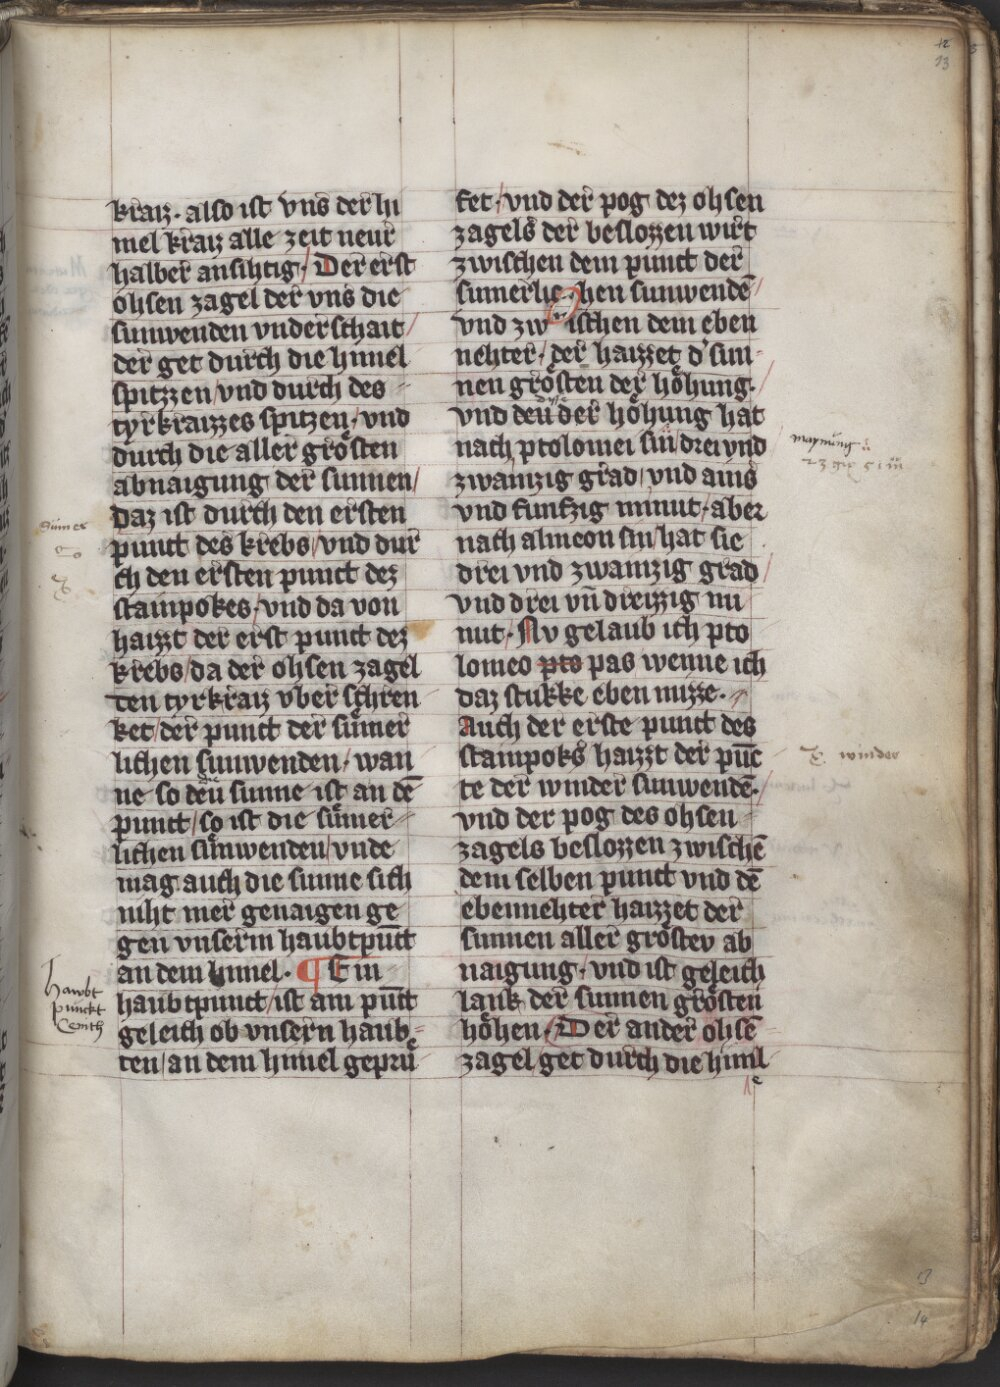 kraiz · also ist vns der hi
mel kraiz alle zeit neur
halber ansihtig / Der erst
ohsen zagel der vns die
sunwenden vnderschait /
der get durch die himel
spitzzen / vnd durch des =
tyrkraizzes spitzen / vnd
durch die aller grősten
abnaigung der sunnen /
daz ist durch den ersten
punct des krebs / vnd dur
ch den ersten punct dez
stainpokes / vnd da von
haizzt der erst punct dez
krebs / da der ohsen zagel
den tyrkraiz vber schren
ket / der punct der sůmer
lichen sunwenden / wan
ne so deu sunne ist an dē
punct / so ist die sůmer =
lichen sunwenden / vnde
mag auch die sunne sich
niht mer genaigen ge
gen vnserm haubtpūct
an dem himel · ¶ Ein
haubtpunct / ist am pūct
geleich ob vnsern haub =
ten / an dem himel geprů
fet / vnd der pog dez ohsen
zagels der beslozzen wirt
zwischen dem punct der
sumerlichen sunwendē /
vnd zwischen dem eben
nehter / der haizzet d' sun =
nen grősten der hőhung · /
vnd deu der hőhung hat
nach ptolomei sin / drei vnd
zwainzig grad / vnd ains
vnd funfzig minut / aber
nach almeon sin / hat sie
drei vnd zwainzig grad /
vnd drei vn̄ dreizzig mi
nut · Nv gelaub ich pto
lomeo pto pas wenne ich
daz stukke eben mizze ·
Auch der erste punct des
stainpoks haizzt der pūc
te der winder sunwendē · /
vnd der pog des ohsen =
zagels beslozzen zwischē
dem selben punct vnd dē
ebennehter haizzet der
sunnen aller grőstev ab
naigung / vnd ist geleich
lank der sunnen grősten
hőhen / Der ander ohsē
zagel / get durch die himl
Sumer
hawbt
punckt
Cenith
maynung
winder
12
13
13
14